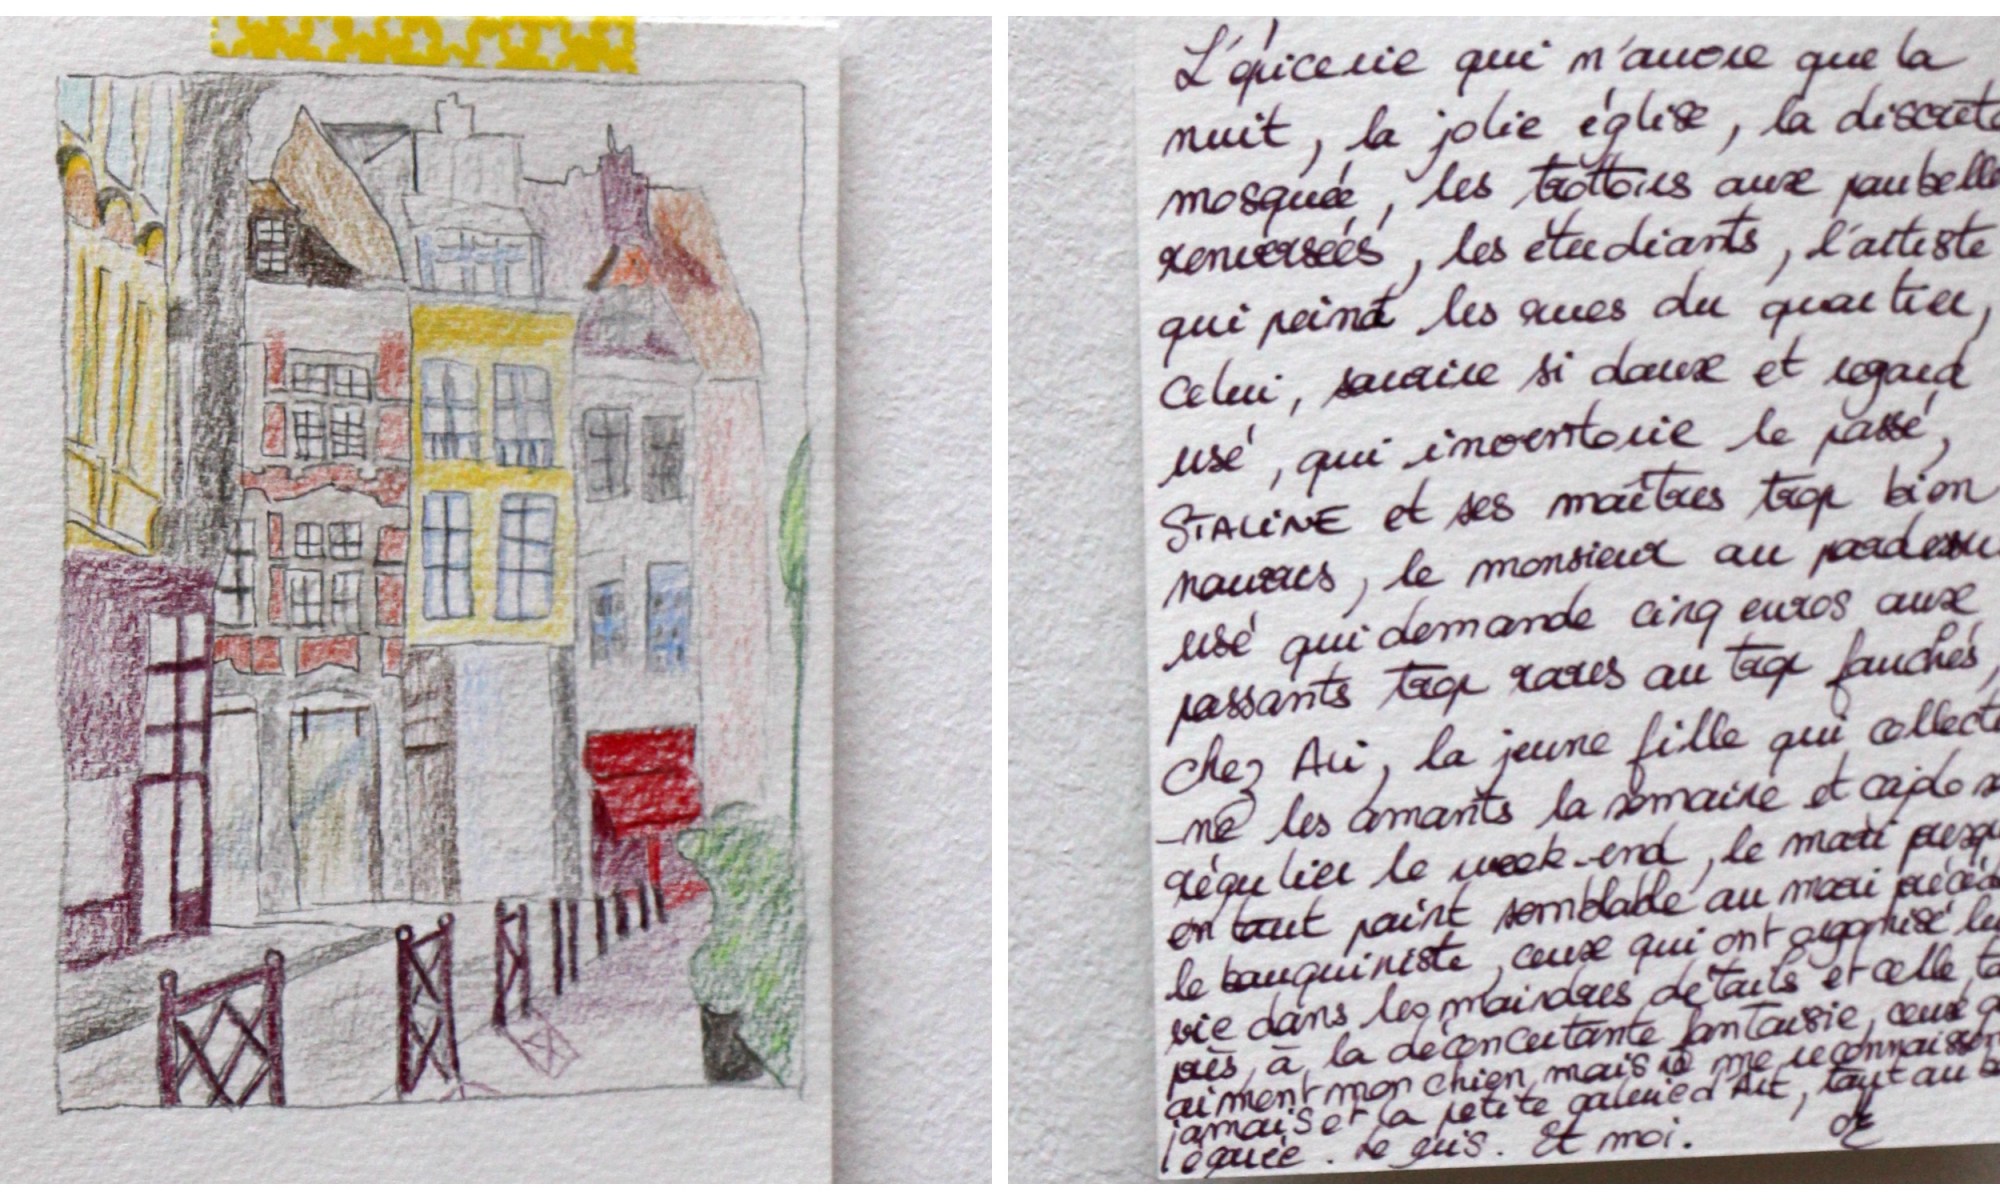 L'épicerie qui n'ouvre que la
nuit, la jolie église, la discrète
mosquée, les trottoirs aux poubelle
renversées, les étudiants, l'artiste
qui peint les rues du quartier,
celui, sourire si doux et regard
usé, qui inventorie le passé,
STALINE et ses maîtres trop bien
nourris, le monsieur au pardessu
usé qui demande cinq euros aux
passants trop rares ou trop fauchés,
chez Ali, la jeune fille qui collecti
-ne les amants la semaine et cajole s
régulier le week-end, le mari presqu
en tout point semblable au mari précéde
le bouquiniste, ceux qui ont agonisé leu
vie dans les moindres détails et celle to
près, à la déconcertante fantaisie, ceux q
aiment mon chien mais me reconnaissen
jamais et la petite galerie d'Art, tout au b
Le quis. Et moi.